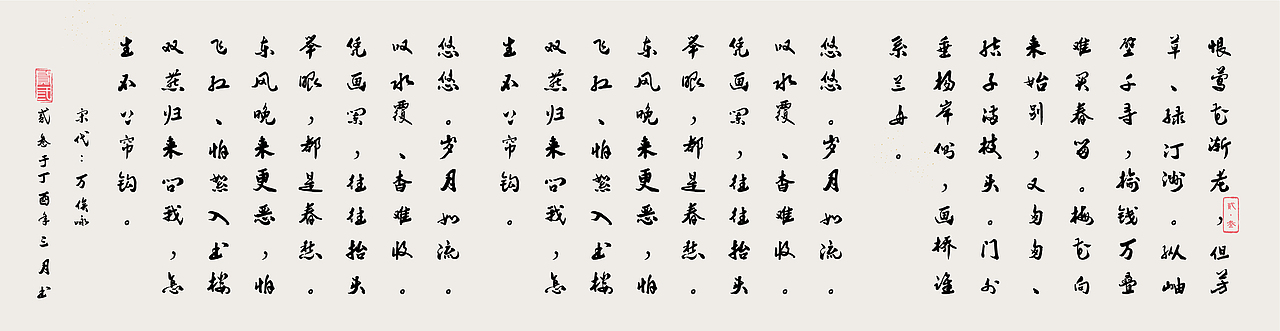 恨莺花渐老，但芳
草、绿汀洲。纵岫
壁千寻，榆钱万叠
难买春留。梅花向
来始别，又匆匆、
结子满枝头。门外
垂杨岸侧，画桥谁
系兰舟。
悠悠。岁月如流。
叹水覆、杳难收。
凭画阑，往往抬头
举眼，都是春愁。
东风晚来更恶，怕
飞红、怕絮入书楼
双燕归来问我，怎
生不上帘钩。
悠悠。岁月如流。
叹水覆、杳难收。
凭画阑，往往抬头
举眼，都是春愁。
东风晚来更恶，怕
飞红、怕絮入书楼
双燕归来问我，怎
生不上帘钩。
宋代：万俟咏
贰叁于丁酉年三月书
贰·叁